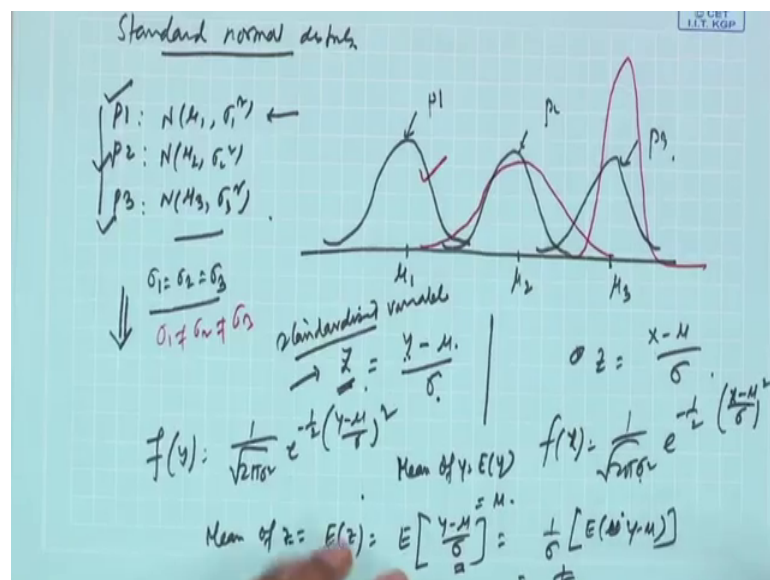 © CET
I.I.T. KGP
Standard normal distn.
P1: N(μ₁, σ₁²) ←
P2: N(μ₂, σ₂²)
P3: N(μ₃, σ₃²)
P1
P2
P3.
μ₁ μ₂ μ₃
σ₁=σ₂=σ₃
σ₁≠σ₂≠σ₃
standardized variable
→ Z = (y-μ)/σ.
z = (x-μ)/σ.
f(y) = 1/√(2πσ²) e^(-1/2 ((y-μ)/σ)²)
Mean of y = E(y)
= μ.
f(x) = 1/√(2πσ²) e^(-1/2 ((x-μ)/σ)²)
Mean of z = E(z) = E[(y-μ)/σ] = 1/σ [E(y-μ)]